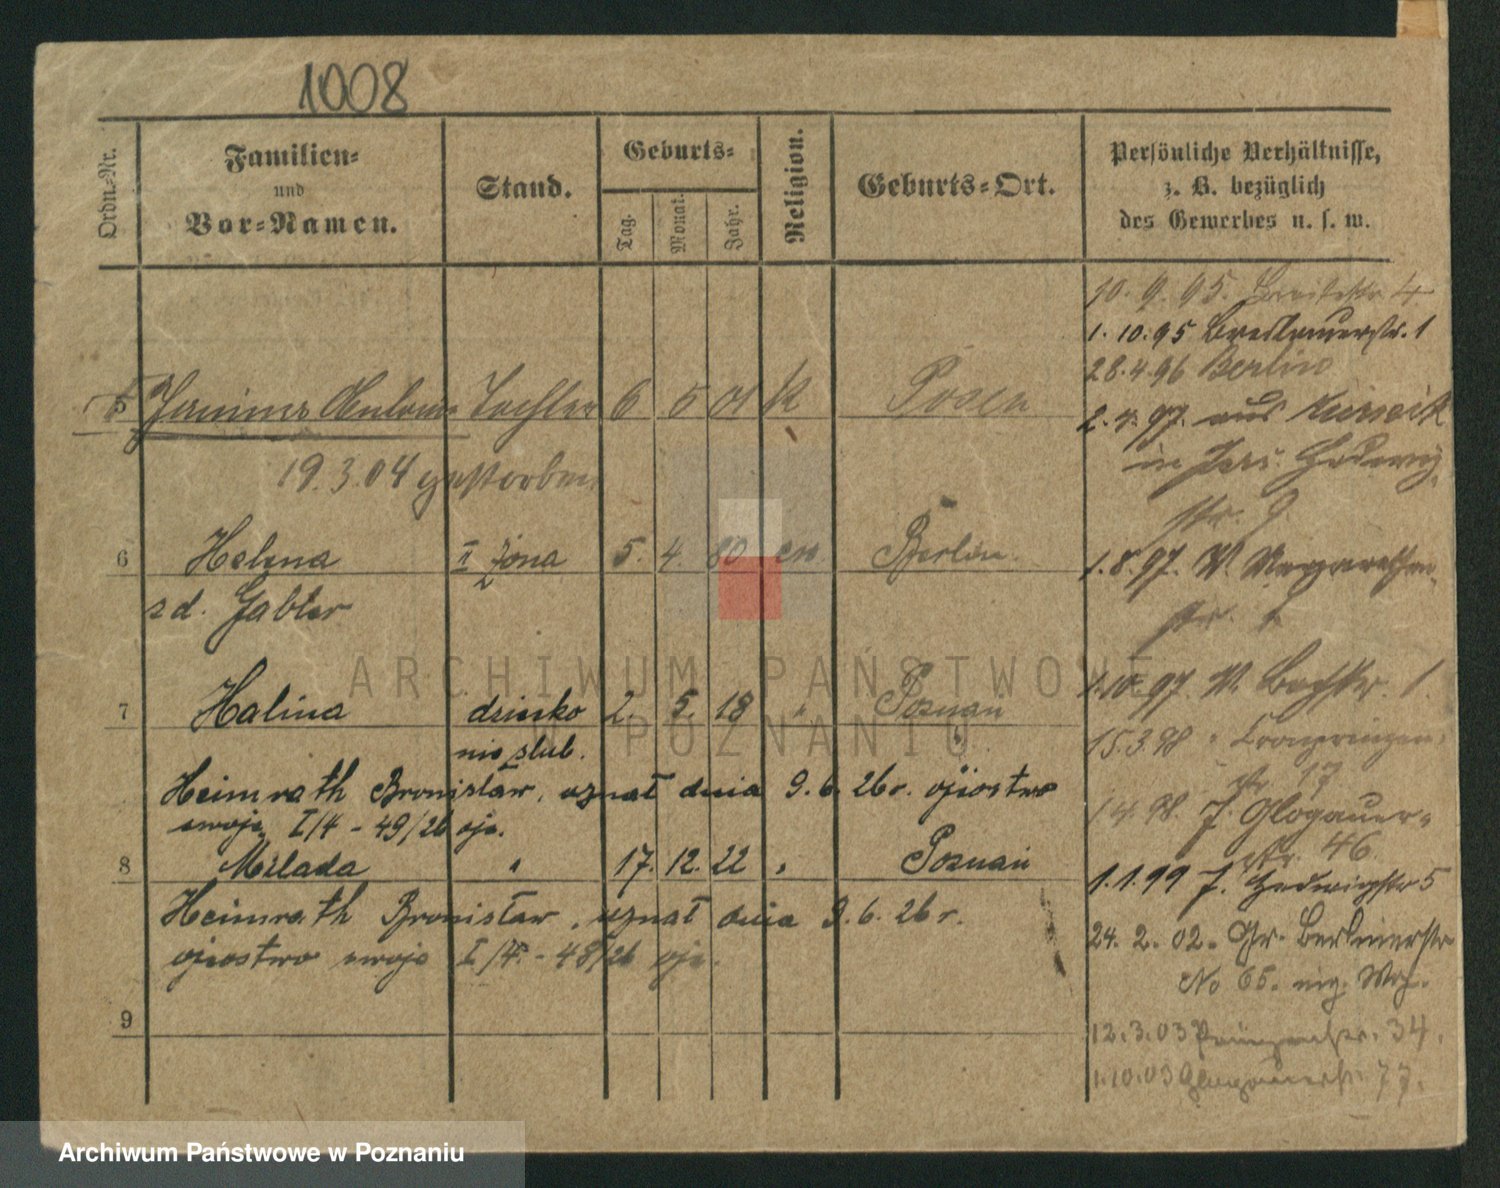 1008
Ordn.-Nr.
Familien-
und
Vor-Namen.
Stand.
Geburts-
Tag.
Monat.
Jahr.
Religion.
Geburts-Ort.
Persönliche Verhältnisse,
z. B. bezüglich
des Gewerbes u. s. w.
5 Janina Tochter 6 5 01 K Posen
19.3.04 gestorben
6 Helena II żona 5. 4. 80 ew. Berlin.
z d. Gabler
7 Halina dziecko 2. 5. 18 " Poznań
nieślub.
Heimrath Bronisław, uznał dnia 9.6.26r. ojcostwo
swoje I/4 - 49/26 ojc.
8 Milada " 17. 12. 22 " Poznań
Heimrath Bronisław, uznał dnia 9.6.26r.
ojcostwo swoje I/4. - 48/26 ojc.
9
10. 9. 95. Breitestr. 4
1.10.95 Breslauerstr. 1
28.4.96 Berlin
2.4.97. aus
in Jers. Hedwig
str. 9
1.8.97. V. Margarethen
str.
1.10.97. V. Bachstr. 1.
15.3.98 " Kronprinzen
str 17
1.4.98. J. Glogauer-
str. 46
1.1.99 J. Hedwigstr 5
24. 2. 02. Gr. Berlinerstr
No 65.
12.3.03 Prinzenstr. 34.
1.10.03 Glogauerstr. 77.
ARCHIWUM PAŃSTWOWE
W POZNANIU
Archiwum Państwowe w Poznaniu